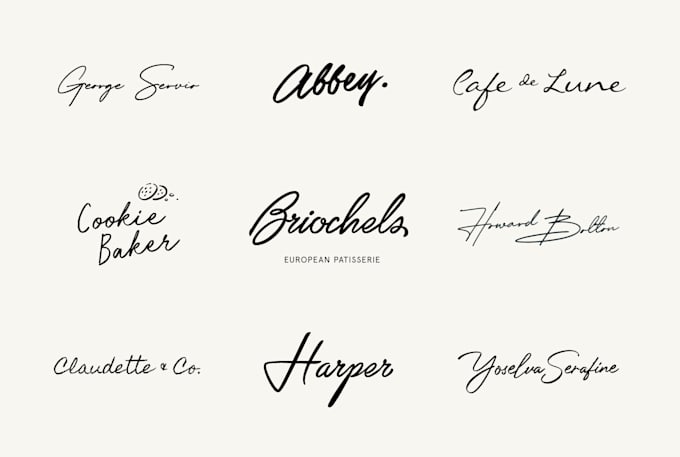 George Servio
Abbey.
Cafe de Lune
Cookie
Baker
Briochels
EUROPEAN PATISSERIE
Howard Bolton
Claudette & Co.
Harper
Yoselva Serafine